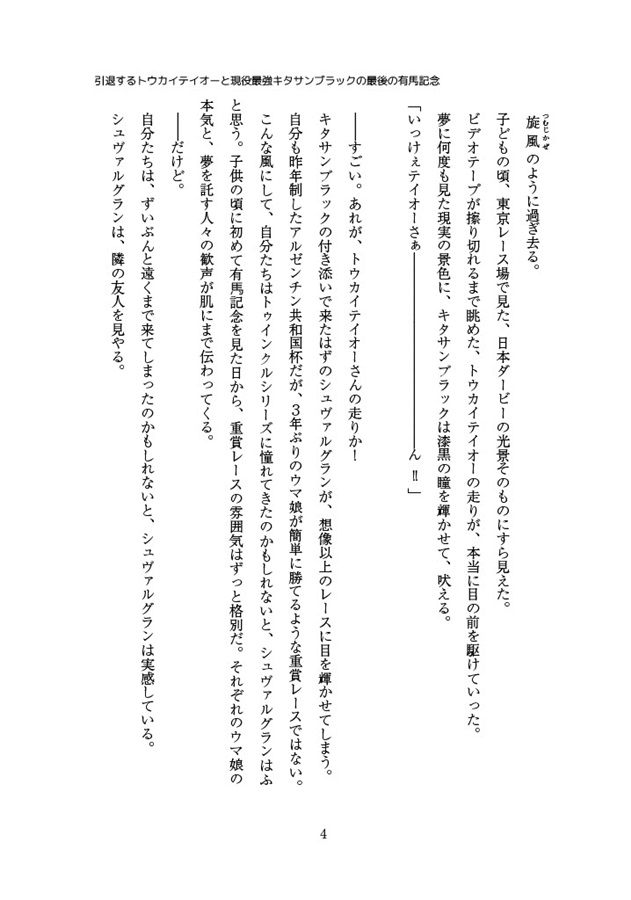 引退するトウカイテイオーと現役最強キタサンブラックの最後の有馬記念
旋風のように過ぎ去る。
つむじかぜ
子どもの頃、東京レース場で見た、日本ダービーの光景そのものにすら見えた。
ビデオテープが擦り切れるまで眺めた、トウカイテイオーの走りが、本当に目の前を駆けていった。
夢に何度も見た現実の景色に、キタサンブラックは漆黒の瞳を輝かせて、吠える。
「いっけぇテイオーさぁ――――――――――ん‼」
――すごい。あれが、トウカイテイオーさんの走りか！
キタサンブラックの付き添いで来たはずのシュヴァルグランが、想像以上のレースに目を輝かせてしまう。
自分も昨年制したアルゼンチン共和国杯だが、３年ぶりのウマ娘が簡単に勝てるような重賞レースではない。
こんな風にして、自分たちはトゥインクルシリーズに憧れてきたのかもしれないと、シュヴァルグランはふ
と思う。子供の頃に初めて有馬記念を見た日から、重賞レースの雰囲気はずっと格別だ。それぞれのウマ娘の
本気と、夢を託す人々の歓声が肌にまで伝わってくる。
――だけど。
自分たちは、ずいぶんと遠くまで来てしまったのかもしれないと、シュヴァルグランは実感している。
シュヴァルグランは、隣の友人を見やる。
4